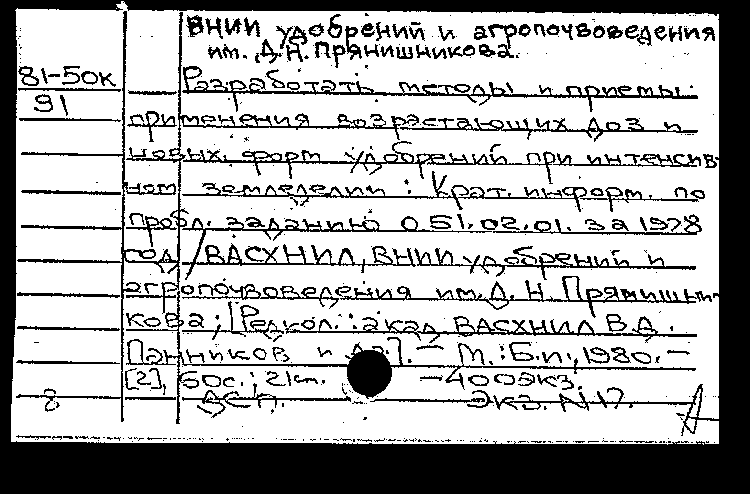 ВНИИ удобрений и агропочвоведения
им. Д.Н. Прянишникова.
81-50к
91
Разработать методы и приемы
применения возрастающих доз и
новых форм удобрений при интенсив-
ном земледелии: Крат. информ. по
пробл. заданию 051.02.01. за 1978
год / ВАСХНИЛ, ВНИИ удобрений и
агропочвоведения им. Д. Н. Прянишни-
кова; [Редкол.: акад. ВАСХНИЛ В.Д.
Панников и др.]. – М.: Б.и., 1980. –
[2], 60с.; 21см. – 400экз.
8 ДСП. Экз. №17.